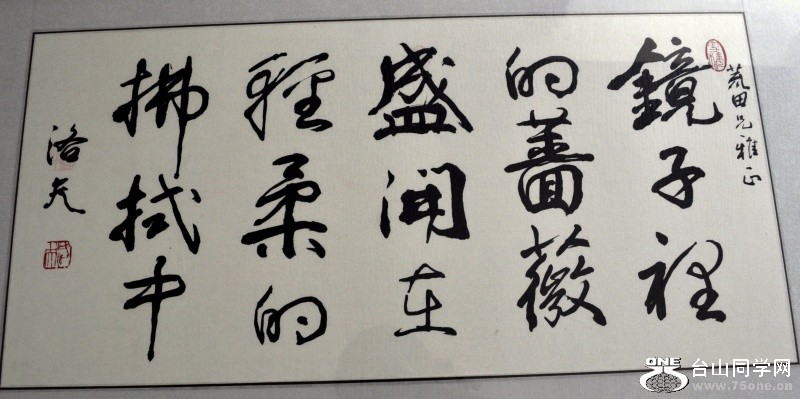 荒田兄雅正
鏡子裡
的薔薇
盛開在
輕柔的
拂拭中
洛夫
ONE
台山同学网
www.75one.cn